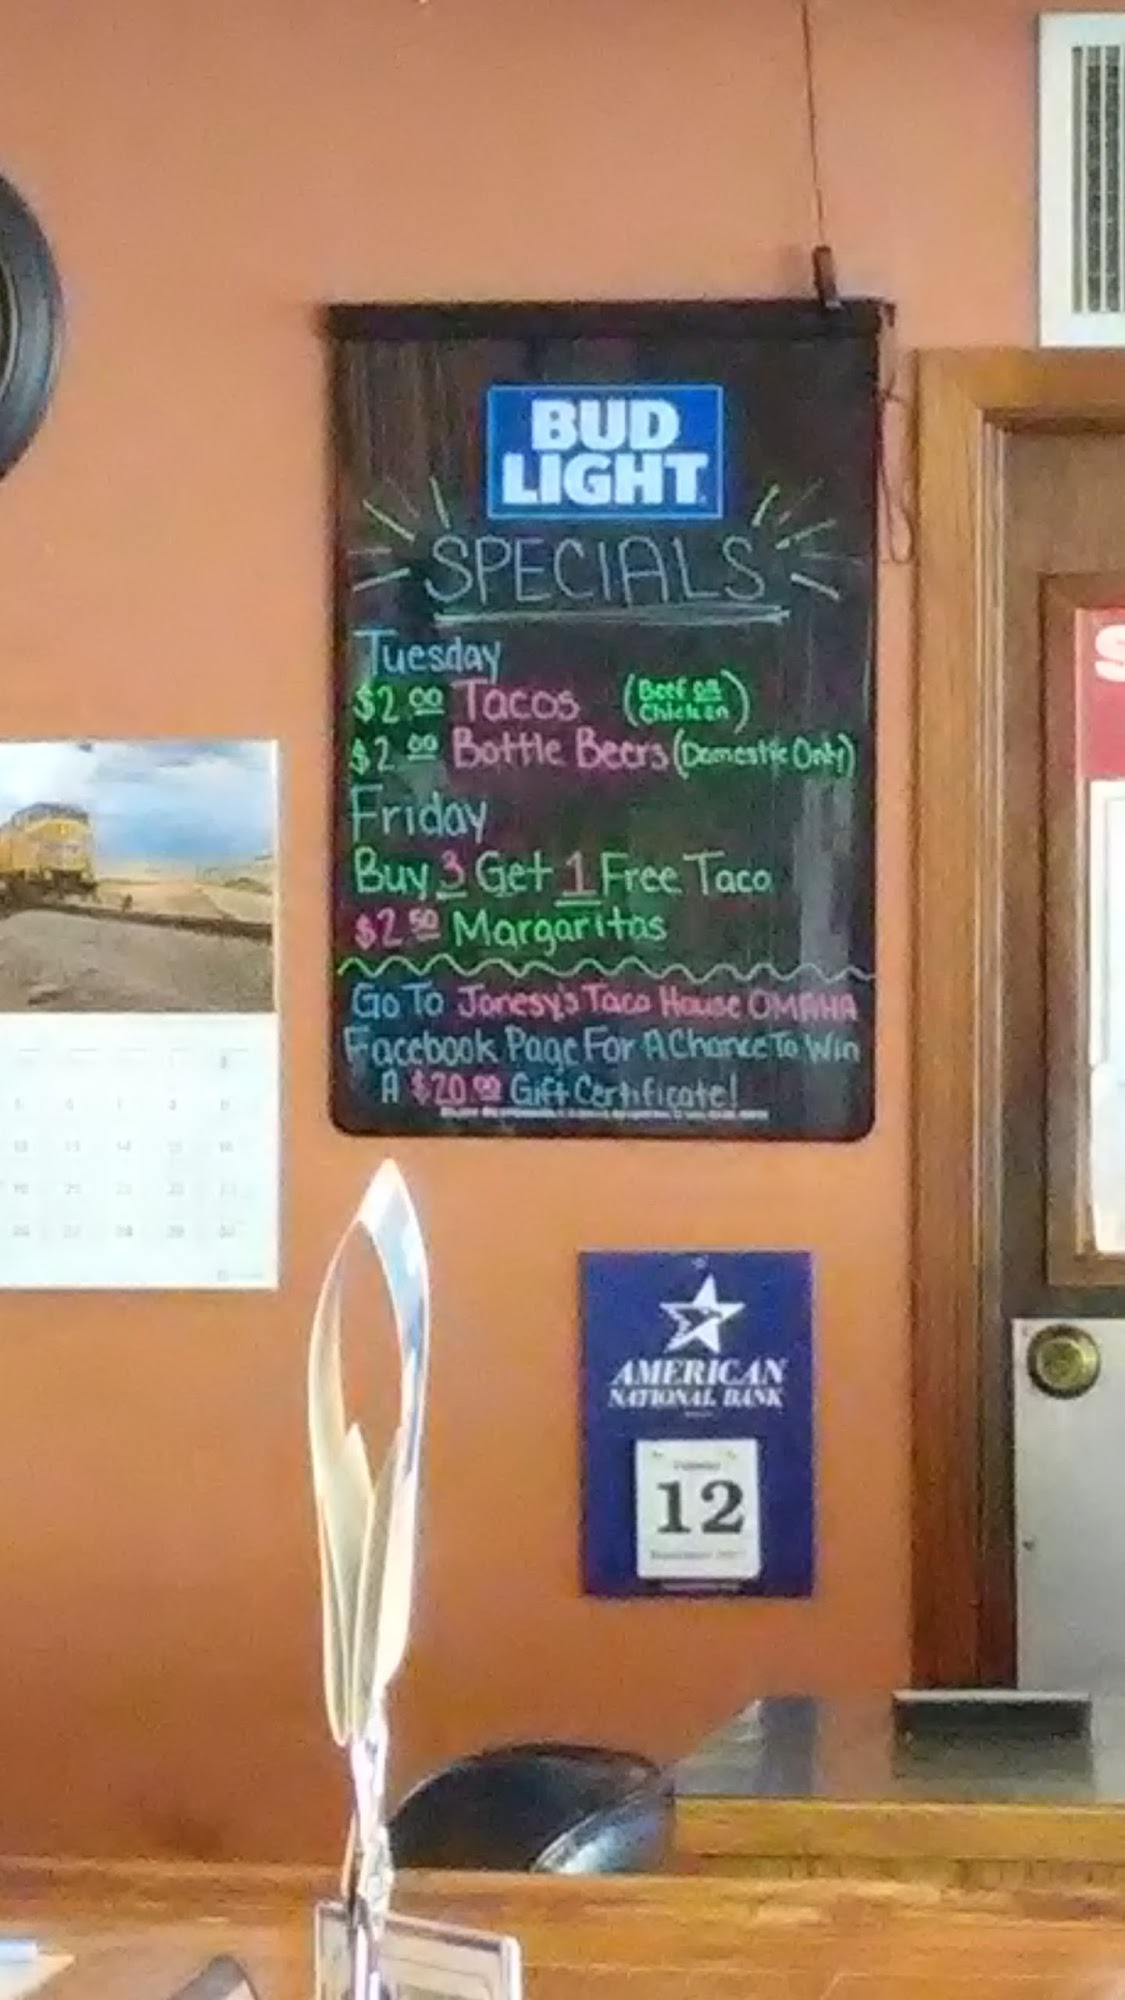 BUD
LIGHT
SPECIALS
Tuesday
$2.00 Tacos (Beef or Chicken)
$2.00 Bottle Beers (Domestic Only)
Friday
Buy 3 Get 1 Free Taco
$2.50 Margaritas
Go To Jonesy's Taco House OMAHA
Facebook Page For A Chance To Win
A $20.00 Gift Certificate!
AMERICAN
NATIONAL BANK
12
S